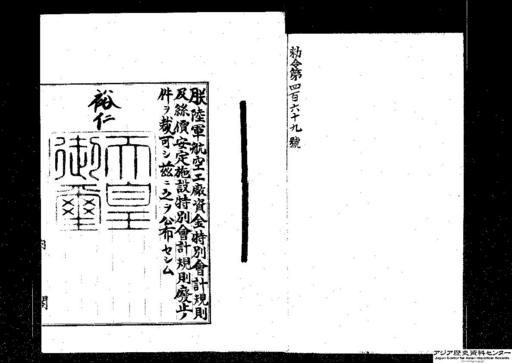 勅令第四百六十九號
朕陸軍航空工廠資金特別會計規則
及絲價安定施設特別會計規則廢止ノ
件ヲ裁可シ茲ニ之ヲ公布セシム
裕仁
天皇
御璽
内閣
アジア歴史資料センター
Japan Center for Asian Historical Records